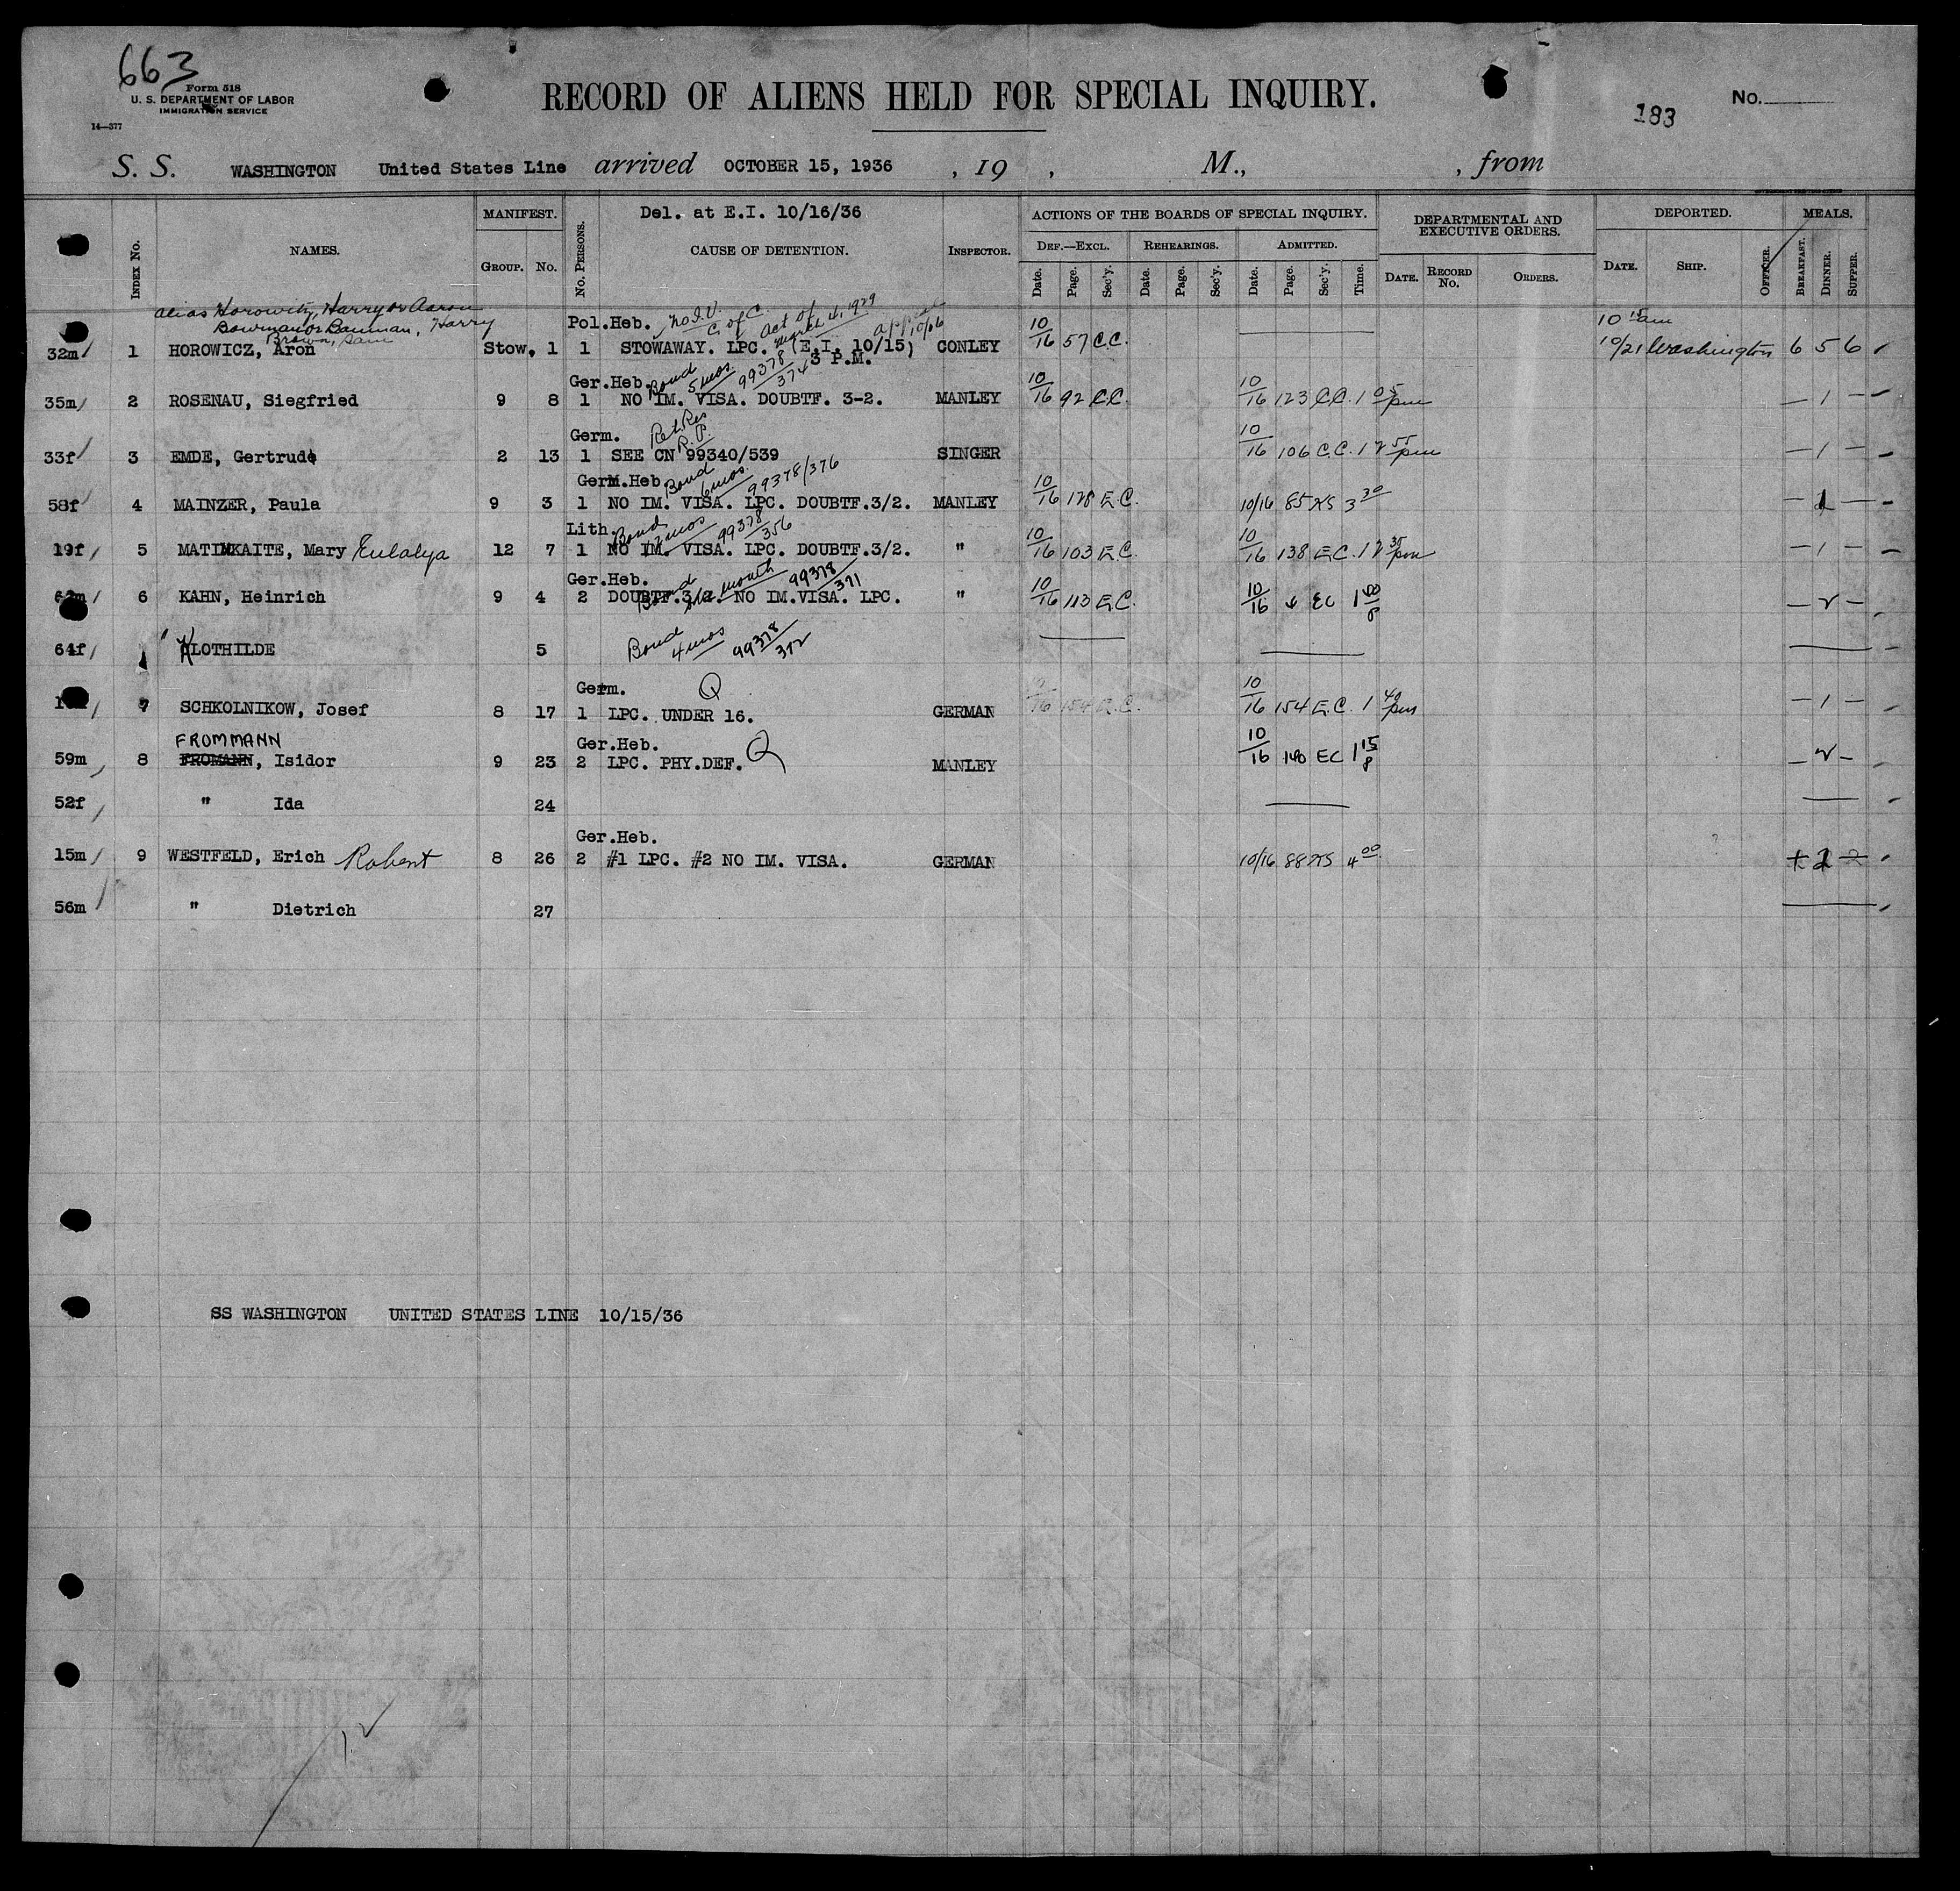 663
Form 518
U. S. DEPARTMENT OF LABOR
IMMIGRATION SERVICE
14—377
RECORD OF ALIENS HELD FOR SPECIAL INQUIRY.
183
No.
S. S. WASHINGTON United States Line arrived OCTOBER 15, 1936 , 19 , M., , from
INDEX No. NAMES. MANIFEST. GROUP. No. No. PERSONS. Del. at E.I. 10/16/36 CAUSE OF DETENTION. INSPECTOR. ACTIONS OF THE BOARDS OF SPECIAL INQUIRY. DEF.—EXCL. Date. Page. Sec'y. REHEARINGS. Date. Page. Sec'y. ADMITTED. Date. Page. Sec'y. Time. DEPARTMENTAL AND EXECUTIVE ORDERS. DATE. RECORD No. ORDERS. DEPORTED. DATE. SHIP. OFFICER. MEALS. BREAKFAST. DINNER. SUPPER.
alias Horowitz, Harry or Aaron
Bowman or Bauman, Harry
Brown, Sam
Pol.Heb. no I.V. C. of C. Act of March 4, 1929 appeal 10/16
10 15 am
32m 1 HOROWICZ, Aron Stow. 1 1 STOWAWAY. LPC. (E.I. 10/15) CONLEY 10/16 57 C.C. 10/21 Washington 6 5 6
3 P.M.
Ger.Heb. Bond 5 mos. 99378/374
35m 2 ROSENAU, Siegfried 9 8 1 NO IM. VISA. DOUBTF. 3-2. MANLEY 10/16 92 C.C. 10/16 123 C.C. 1 05 pm — 1 —
Germ. Ret. Res R.P.
33f 3 EMDE, Gertrude 2 13 1 SEE CN 99340/539 SINGER 10/16 106 C.C. 12 55 pm — 1 —
Germ.Heb. Bond 6 mos. 99378/376
58f 4 MAINZER, Paula 9 3 1 NO IM. VISA. LPC. DOUBTF.3/2. MANLEY 10/16 128 E.C. 10/16 85 3 30 — 1 —
Lith. Bond 12 mos 99378/356
19f 5 MATINKAITE, Mary Eulalya 12 7 1 NO IM. VISA. LPC. DOUBTF.3/2. " 10/16 103 E.C. 10/16 138 E.C. 12 35 pm — 1 —
Ger.Heb. Bond month 99378/371
6 KAHN, Heinrich 9 4 2 DOUBTF.3/2. NO IM.VISA. LPC. " 10/16 113 E.C. 10/16 EC 1 00 — 2 —
64f " KLOTHILDE 5 Bond 4 mos 99378/372
Germ. Q
7 SCHKOLNIKOW, Josef 8 17 1 LPC. UNDER 16. GERMAN 10/16 154 E.C. 10/16 154 E.C. 1 40 pm — 1 —
FROMMANN Ger.Heb. Q
59m 8 FROMANN, Isidor 9 23 2 LPC. PHY.DEF. MANLEY 10/16 140 EC 1 15 — 2 —
52f " Ida 24
Ger.Heb.
15m 9 WESTFELD, Erich Robert 8 26 2 #1 LPC. #2 NO IM. VISA. GERMAN 10/16 88 4 00
56m " Dietrich 27
SS WASHINGTON UNITED STATES LINE 10/15/36
12